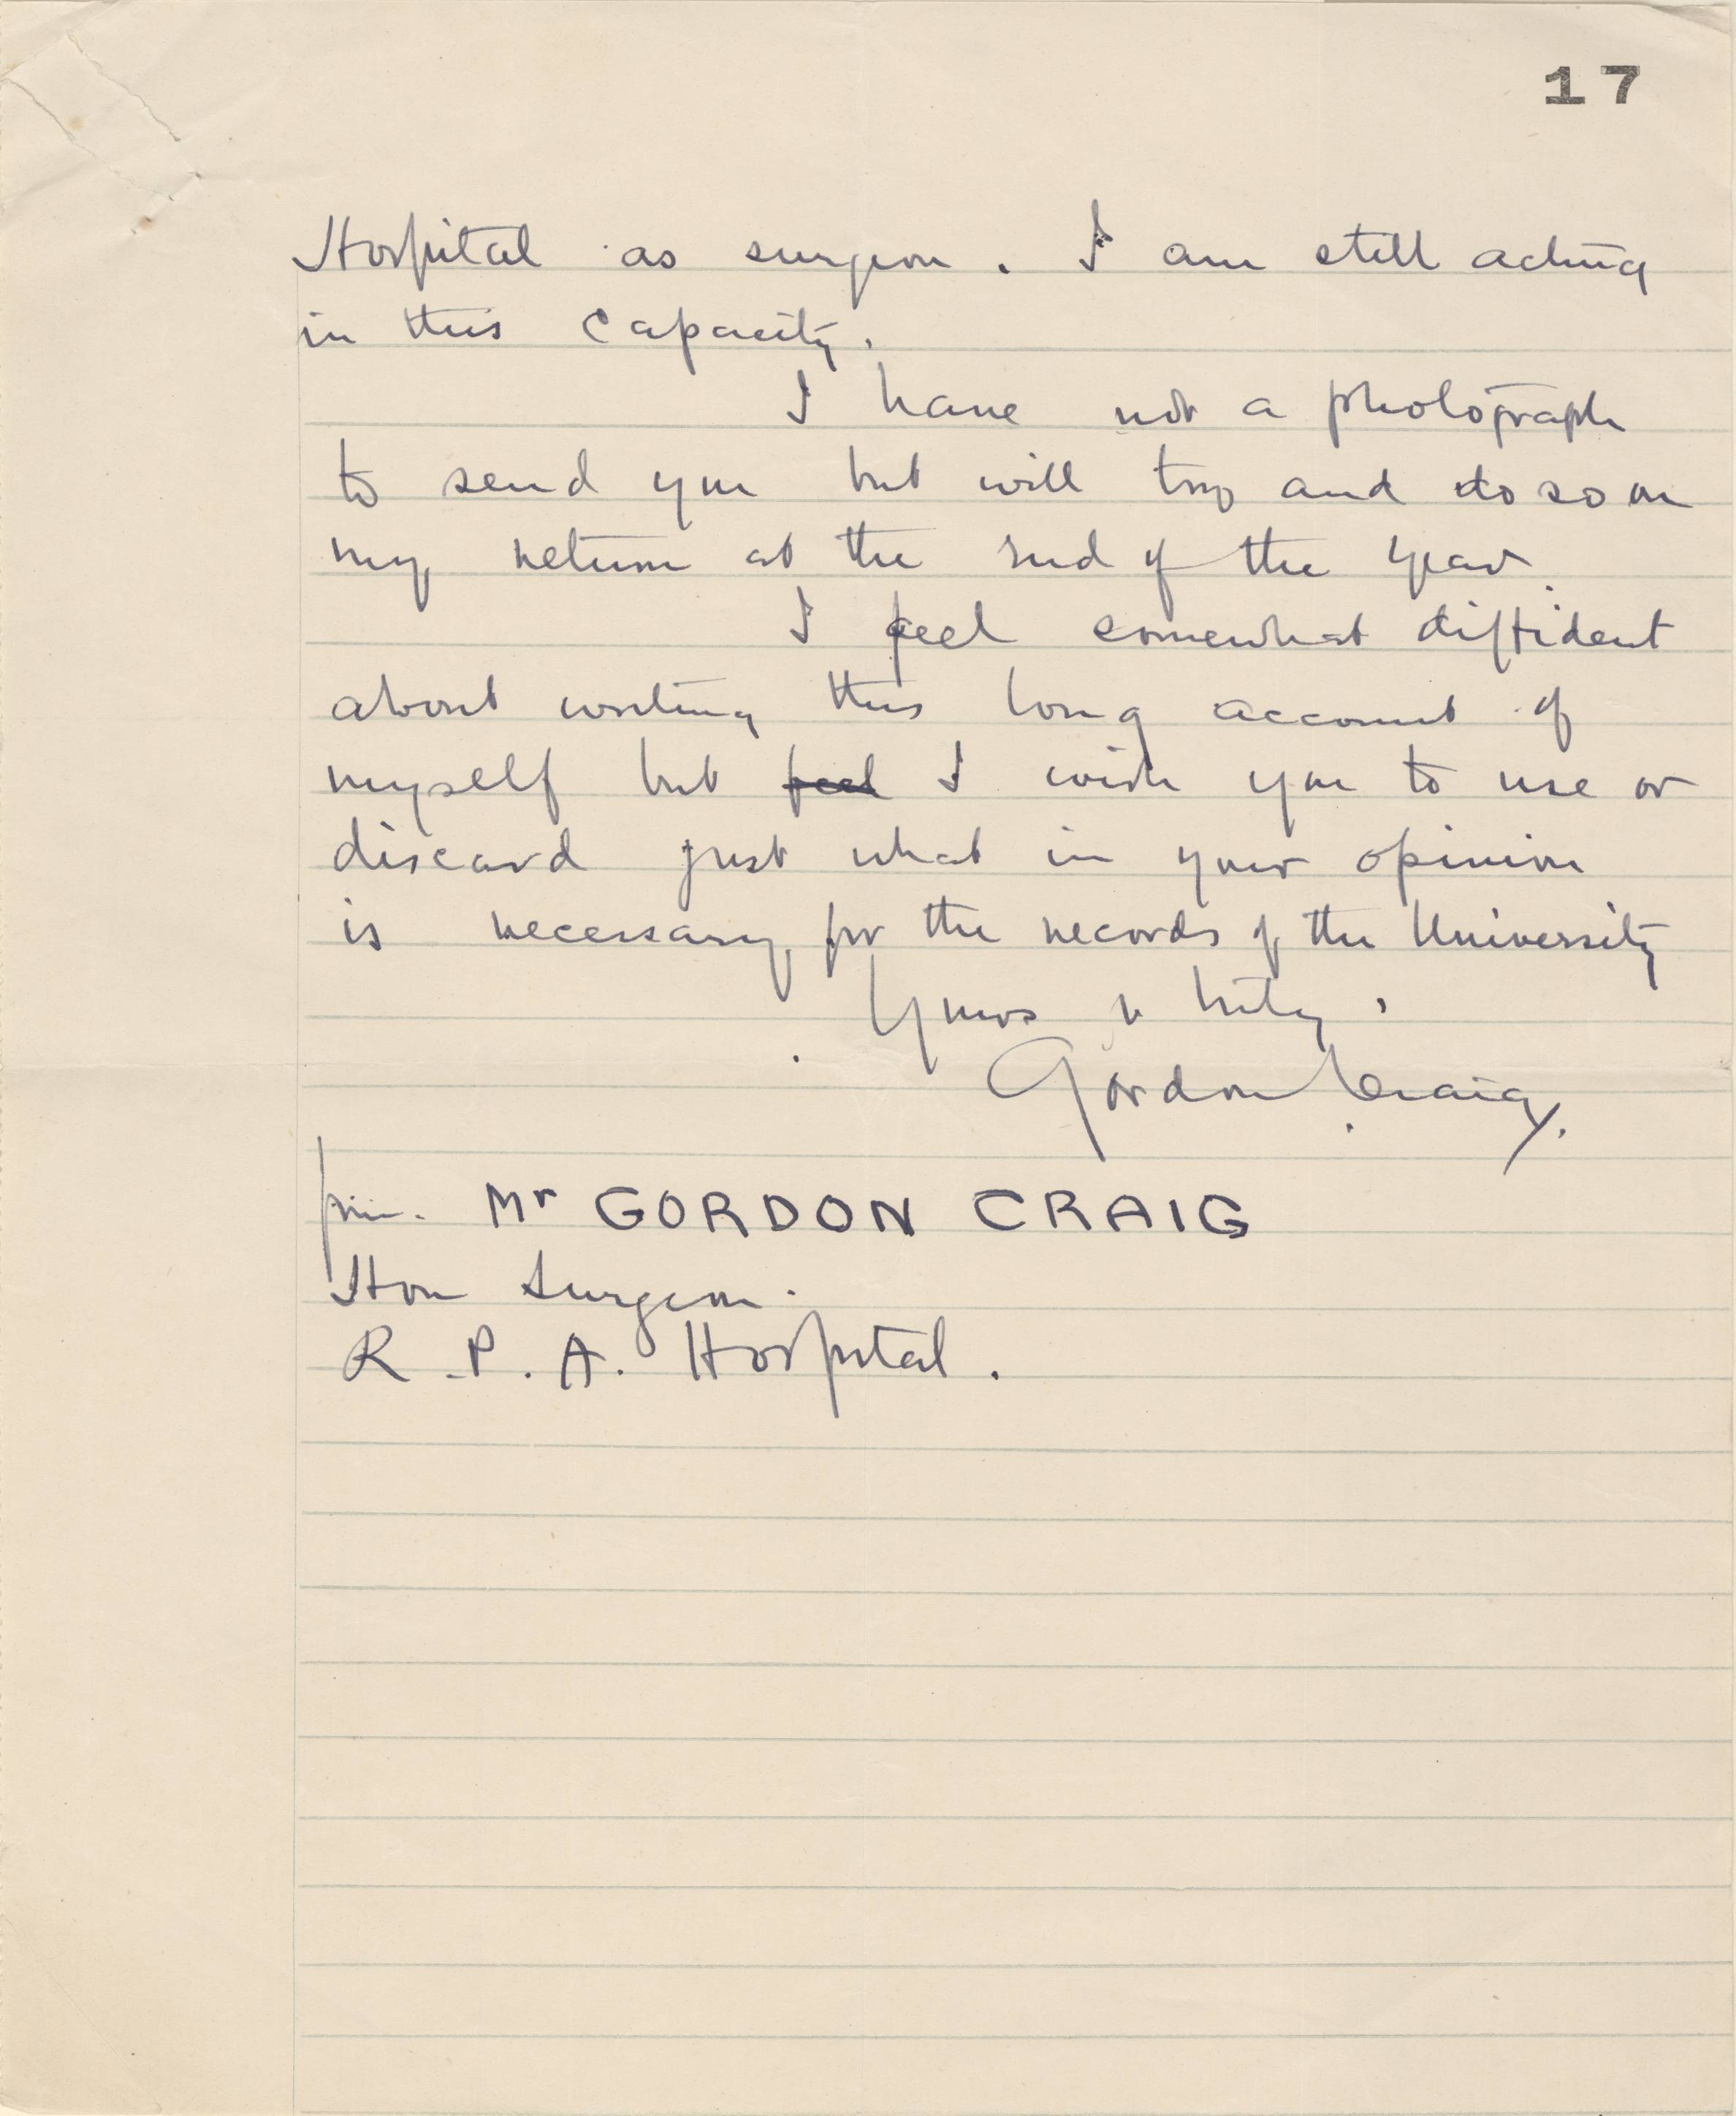 17
Hospital as surgeon. I am still acting
in this capacity.
I have not a photograph
to send you but will try and do so on
my return at the end of the year.
I feel somewhat diffident
about writing this long account of
myself but feel I wish you to use or
discard just what in your opinion
is necessary for the records of the University
Yours v truly,
Gordon Craig.
from. Mr GORDON CRAIG
Hon Surgeon.
R.P.A. Hospital.